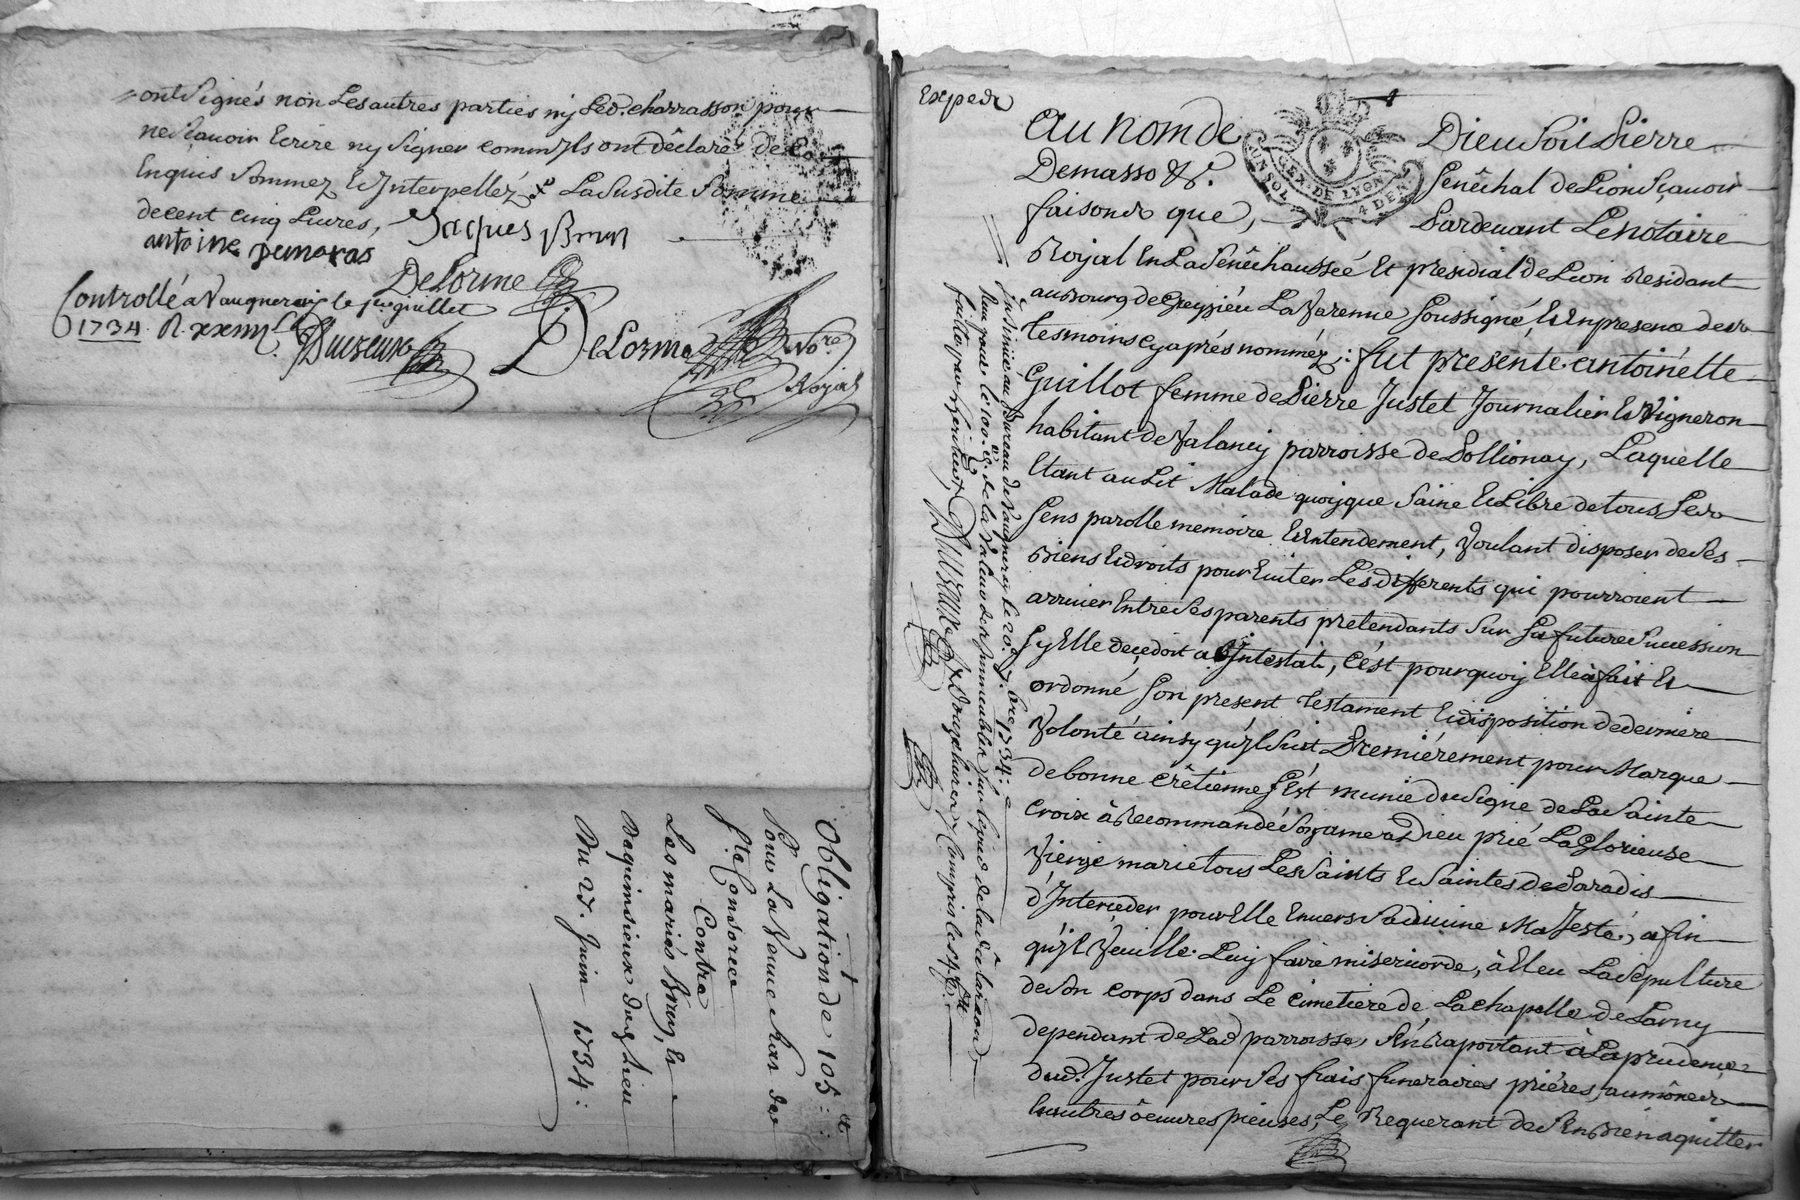 ont signés non les autres parties ny led. charrasson pour
ne sçavoir Ecrire ny signer comm'ils ont dêclaré de ce
Enquis sommez & Interpelléz La susdite somme
de cent cinq Livres,
Jacques Brun
antoine Demaras
Delorme
Controllé a Vaugneray le pr. juillet
1734. R. xxiiii s.
Duvreux
DeLorme
No.re
Royal
Obligation de 105 lt:
Pour La Veuve
Ste. Consorce
Contre
Les mariés Brun, la
Du 27. Juin 1734:
Exped
Au nom de Dieu Soit Pierre
Demasso &c. Senêchal de Lion Sçavoir
faisons que, Pardevant Le notaire
Royal En La Sênêchaussée Et presidial de Lion Residant
au bourg de Greyzieu La Varenne soussigné, & En presence des
tesmoins cy aprés nomméz; fut presente antoinétte
Guillot femme de Pierre Justet Journalier & Vigneron
habitant de Valancy parroisse de Pollionay, Laquelle
Etant au Lit Malade quoyque saine & Libre de tous ses
sens parolle memoire & Entendement, Voulant disposer de ses
Biens & droits pour Eviter Les différents qui pourroient
arriver Entre ses parents pretendants sur sa future succession
sy Elle decedoit ab Intestat, c'ést pourquoy Elle à fait &
ordonné son present testament & disposition de derniere
Volonté ainsy qu'jl suit Premiérement pour Marque
de bonne crêtienne s'ést munie du signe de La Sainte
croix à Recommandé son ame a Dieu prié La Glorieuse
Vierge marie tous Les Saints & Saintes de Paradis
d'Interceder pour Elle Envers sa divine Majesté, afin
qu'jl Veuille Luy faire misericorde, à Eleu La sepulture
de son corps dans Le cimetiere de La chapelle de Larny
dependant de Lad. parroisse, s'én Raportant à La prudence
dud. Justet pour ses frais funeraires priéres, aumônes
& autres oeuvres pieuses, Le Requerant de s'En Bien aquitter
Insinué au Bureau de Vaugneray le 20e. 7bre 1734:
Reçu pour le 100e. d. de la Valeur des Immeubles
GEN. DE LYON
UN SOL 4 DEN